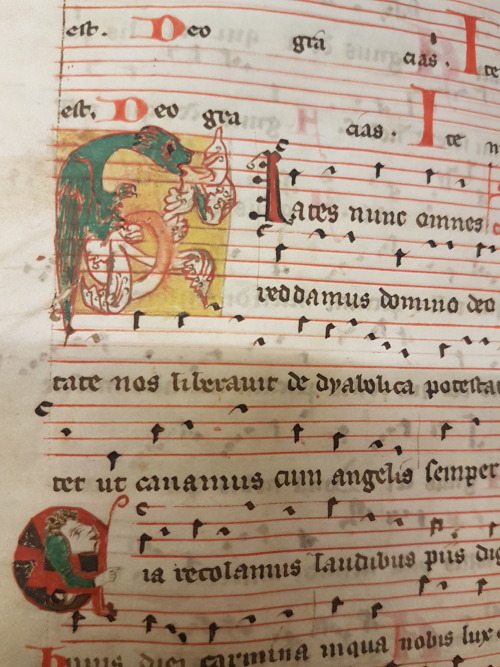 est. Deo gra cias. Ite
est. Deo gra cias. Ite
GRates nunc omnes
reddamus domino deo
tate nos liberauit de dyabolica potesta
tet ut canamus cum angelis semper
Eia recolamus laudibus piis dig
huius diei carmina inqua nobis lux